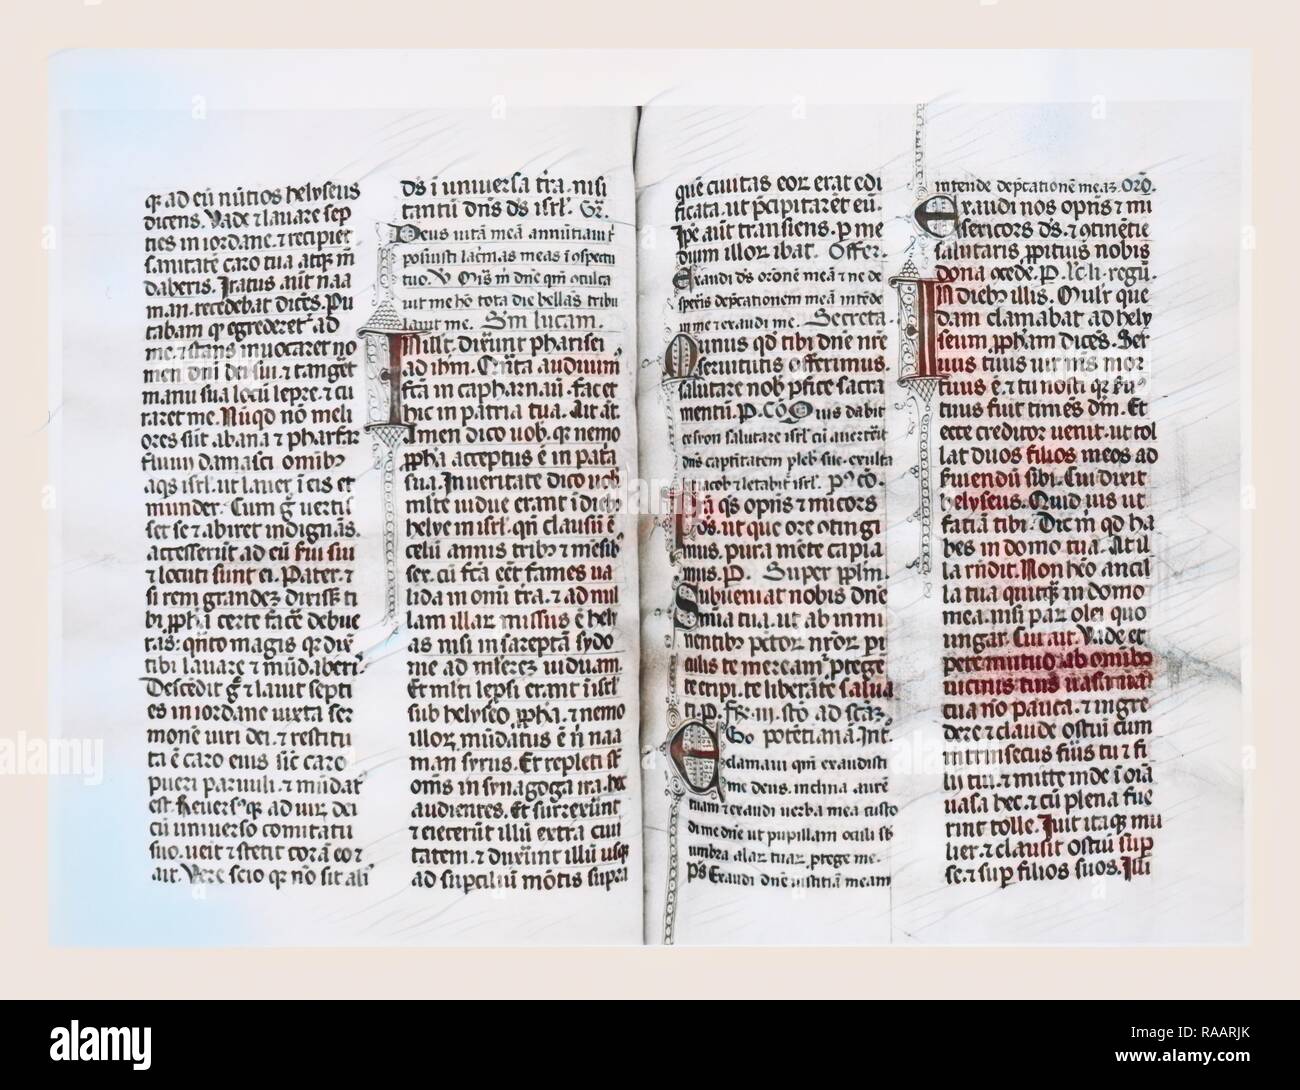 qr ad eū nūtios helyseus
dicens. Vade ⁊ lauare sep
ties in iordane. ⁊ recipiet
sanitatē caro tua atqz m̄
daberis. Iratus aūt naa
man. recedebat dicēs. Pu
tabam qr egrederet᷑ ad
me. ⁊ stans inuocaret no
men dn̄i dei sui. ⁊ tanget
manu sua locū lepre. ⁊ cu
raret me. Nūqd nō meli
ores sūt abana ⁊ pharfar
fluuij damasci omibꝫ
aqs isrl. ut lauer ī eis et
munder. Cum g̊ uertis
set se ⁊ abiret indignās.
accesserūt ad eū sui sui
⁊ locuti sunt ei. Pater. ⁊
si rem grandeꝫ dixissꝫ ti
bi ꝓph̄a certe facē debue
ras: qn̄to magis qr dix̄
tibi lauare ⁊ mūdaberis.
Descēdit g̊ ⁊ lauit septi
es in iordane iuxta ser
monē uiri dei. ⁊ restitu
ta ē caro eius sic̄ caro
pueri paruuli. ⁊ mūdat᷒
est. Reuersusqꝫ ad uir. dei
cū uniuerso comitatu
suo. ueīt ⁊ stetit corā eo ⁊
ait. Vere scio qr nō sit ali᷒
ds̄ ī uniuersa tr̄a. nisi
tantū dn̄s ds̄ isrl. Gr.
Deus uitā meā annūtiaui t᷑
posuisti lac̄mas meas ī ꝯspectu
tuo. V Mis̄. m̄ dn̄e qm̄ ꝯculca
uit me hō tota die bellās tribu
lauit me. Sm̄ lucam.
In illt. dixerūt pharisei
ad ihm̄. Qn̄ta audiuim᷒
fc̄a in capharnaū. fac et
hic in patria tua. Ait āt.
Amen dico uob. qr nemo
ꝓph̄a acceptus ē in pat̄a
sua. In ueritate dico uob
mlt̄e uidue erant ī diebꝫ
helye in isrl. qn̄ clausū ē
celū annis tribꝫ ⁊ mēsibꝫ
sex. cū fc̄a eēt fames ua
lida in om̄i tr̄a. ⁊ ad nul
lam illaꝝ missus ē hely
as nisi in sareptā sydo
nie ad ml̄ierez uiduam.
Et mlt̄i lepsi erant ī isrl
sub helyseo ꝓph̄a. ⁊ nemo
illoꝝ mūdatus ē n̄ naa
man syrus. Et repleti st̄
om̄s in synagoga ira. hec
audientes. Et surrexūnt
⁊ eiecerūt illū extra ciui
tatem. ⁊ duxerunt illū usqꝫ
ad suꝑciliū mōtis supra
quē ciuitas eoꝝ erat edi
ficata. ut p̄cipitarēt eū.
Ipe aūt transiens. p me
dium illoꝝ ibat. Offer.
Exaudi ds̄ orōnē meā ⁊ ne de
speris dep̄cationem meā intēde
in me ⁊ exaudi me. Secreta.
Munus qd tibi dn̄e nr̄e
seruitutis offerimus.
salutare nob ꝑfice sacra
mentū. P. Cō Quis dabit
ex syon salutare isrl. cū auerterit
dn̄s captītatem pleb᷒ sue. exulta
bit iacob ⁊ letabit᷑ isrl. Pꝰ cō.
Pa qs om̄ps ⁊ micors
ds̄. ut que ore ꝯtingi
mus. pura mēte capia
mus. P. Super pplm̄.
Subueniat nobis dn̄e
mīa tua. ut ab immi
nentibꝫ pctoꝝ nr̄oꝝ pi
culis te meream᷑ ꝓtege
te eripi. te liberāte salua
ri. P. Fr. iij. stō. ad scāꝫ
Ego potētianā. Int.
clamaui qm̄ exaudisti
me deus. inclina aurē
tuam ⁊ exaudi uerba mea custo
di me dn̄e ut pupillam oculi sb̄
umbra alaꝝ tuaꝝ ꝓtege me.
P̄s Exaudi dn̄e iustitiā meam
intende dep̄cationē meaꝫ. Orō.
Exaudi nos om̄ps ⁊ mi
sericors ds̄. ⁊ ꝯtinētie
salutaris ꝓpitius nobis
dona ꝯcede. P. Lc̄. li. regū.
In diebꝫ illis. Mulr que
dam clamabat ad hely
seum. ꝓpham dicēs. Ser
uus tuus uir me᷒ mor
tuus ē. ⁊ tu nosti qr ẜu᷒
tuus fuit timēs dm̄. Et
ecce creditor uenit. ut tol
lat duos filios meos ad
ẜuiendū sibi. Cui dixit
helyseus. Quid uis ut
faciā tibi. Dic m̄ qd ha
bes in domo tua. At il
la rn̄dit. Non hēo ancil
la tua quicqꝫ in domo
mea. nisi paꝝ olei quo
ungar. Cui ait. Vade et
pete mutuo ab omībꝫ
uicinis tuis uasa uac
cua nō pauca. ⁊ ingre
dere ⁊ claude ostiū cum
intrinsecus fūis tu ⁊ fi
lij tui. ⁊ mitte inde ī oīa
uasa hec. ⁊ cū plena fue
rint tolle. Iuit itaqꝫ mu
lier. ⁊ clausit ostiū sup
se. ⁊ sup filios suos. Illi
alamy
Image ID: RAARJK
www.alamy.com